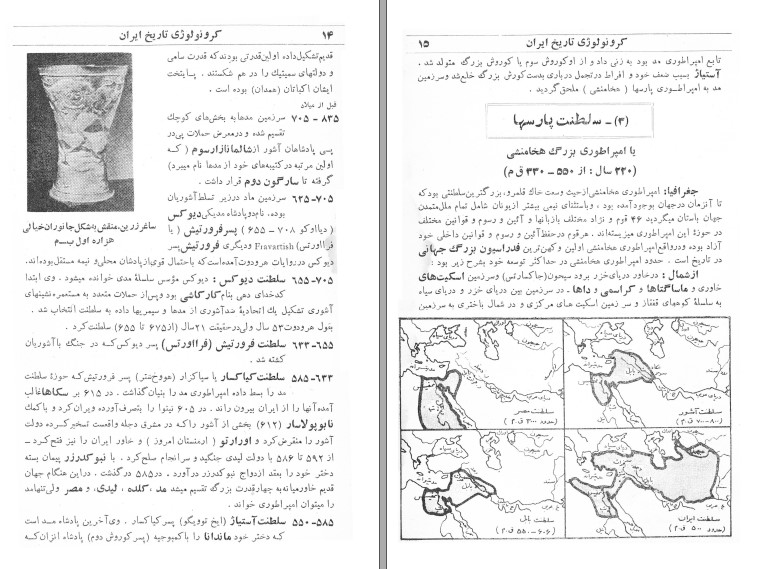 ۱۴ کرونولوژی تاریخ ایران
قدیم تشکیل داده اولین قدرتی بودند که قدرت سامی
و دولتهای سمیتیک را در هم شکستند . پایتخت
ایشان اکباتان (همدان) بوده است .
قبل از میلاد
۸۳۵-۷۰۵ سرزمین مدها به بخش‌های کوچک
تقسیم شده و در معرض حملات پی‌در
پی پادشاهان آشور از شالمانازار سوم ( که
اولین مرتبه در کتیبه‌های خود از مدها نام میبرد)
گرفته تا سارگون دوم قرار داشت .
۷۰۵-۶۲۵ سرزمین ماد در زیر تسلط آشوریان
بوده، نام دو پادشاه مدیکی دیوکس
( دیااوکو ۷۰۸ - ۶۵۵ ) پسر فرورتیش ( یا
فرااورتس) Fravartish و دیگری فرورتیش پسر
ساغر زرین، منقش به شکل جانوران خیالی
هزاره اول بیستم
دیوکس در روایات هرودوت آمده است که باحتمال قوی از پادشاهان محلی و نیمه مستقل بوده‌اند.
۷۰۵-۶۵۵ سلطنت دیوکس : دیوکس مؤسس سلسلهٔ مدی خوانده میشود . وی ابتدا
کدخدای دهی بنام کارکاشی بود و پس از حملات متعدد به مستعمره نشینهای
آشوری تشکیل یک اتحادیهٔ ضد آشوری از مدها و سیمریها داده به سلطنت انتخاب شد .
بقول هرودوت ۵۳ سال ولی در حقیقت ۲۱ سال (از ۶۷۵ تا ۶۵۵) سلطنت کرد .
۶۵۵-۶۳۳ سلطنت فرورتیش (فرااورتس) پسر دیوکس که در جنگ با آشوریان
کشته شد .
۶۳۳-۵۸۵ سلطنت کیاکسار یا سیاکزار (هووخ‌شتر) پسر فرورتیش که حوزهٔ سلطنت
مد را بسط داده امپراطوری مد را بنیان گذاشت . در ۶۱۵ بر سکاها غالب
آمده آنها را از ایران بیرون راند . در ۶۰۵ نینوا را بتصرف آورده ویران کرد و با کمک
نابوپولاسار (۶۱۲) بخشی از آشور را که در مشرق دجله واقعست تسخیر کرده دولت
آشور را منقرض کرد و اورارتو ( ارمنستان امروز ) و خاور ایران را نیز فتح کرد ـ
از ۵۹۲ تا ۵۸۶ با دولت لیدی جنگید و سرانجام صلح کرد . با نبوکدرزر پیمان بسته
دختر خود را بعقد ازدواج نبوکدزر درآورد . در ۵۸۵ در گذشت . در این هنگام جهان
قدیم خاورمیانه به چهار قدرت بزرگ تقسیم میشد مد ، کلده ، لیدی، و مصر ولی تنها مد
را میتوان امپراطوری خواند .
۵۸۵-۵۵۰ سلطنت آستیاژ (ایخ توویگو) پسر کیاکسار . وی آخرین پادشاه مد است
که دختر خود ماندانا را با کمبوجیه (پسر کوروش دوم) پادشاه انزان که
کرونولوژی تاریخ ایران ۱۵
تابع امپراطوری مد بود به زنی داد و از او کوروش سوم یا کوروش بزرگ متولد شد .
آستیاژ بسبب ضعف خود و افراط در تجمل درباری بدست کورش بزرگ خلع شد و سرزمین
مد به امپراطوری پارسها ( هخامنشی ) ملحق گردید .
(۳) - سلطنت پارسها
یا امپراطوری بزرگ هخامنشی
(۲۲۰ سال : از ۵۵۰ - ۳۳۰ ق م)
جغرافیا: امپراطوری هخامنشی از حیث وسعت خاک قلمرو، بزرگترین سلطنتی بود که
تا آنزمان در جهان بوجود آمده بود . و باستثنای نیمی بیشتر از یونان شامل تمام ملل متمدن
جهان باستان میگردید ۴۶ قوم و نژاد مختلف با زبانها و آئین و رسوم و قوانین مختلف
در حوزهٔ این امپراطوری میزیسته‌اند . هر قوم در حفظ آئین و رسوم و قوانین داخلی خود
آزاد بوده و در واقع امپراطوری هخامنشی اولین و کهن‌ترین فدراسیون بزرگ جهانی
در تاریخ است . حدود امپراطوری هخامنشی در حداکثر توسعه خود بشرح زیر بود :
از شمال : در خاور دریای خزر برود سیحون (جاکسارتس) و سرزمین اسکیت‌های
خاوری و ماساگتاها و کراسمی و داها ـ در سرزمین بین دریای خزر و دریای سیاه
به سلسلهٔ کوههای قفقاز و سرزمین اسکیت های مرکزی و در شمال باختری به سرزمین
سلطنت مصر
(حدود ۳۰۰ ق.م)
سلطنت آشور
(۸۰۰-۷۰۰ ق.م)
سلطنت بابل
(۶۰۶-۵۵۰ ق.م)
سلطنت ایران
(حدود ۵۰۰ ق.م)